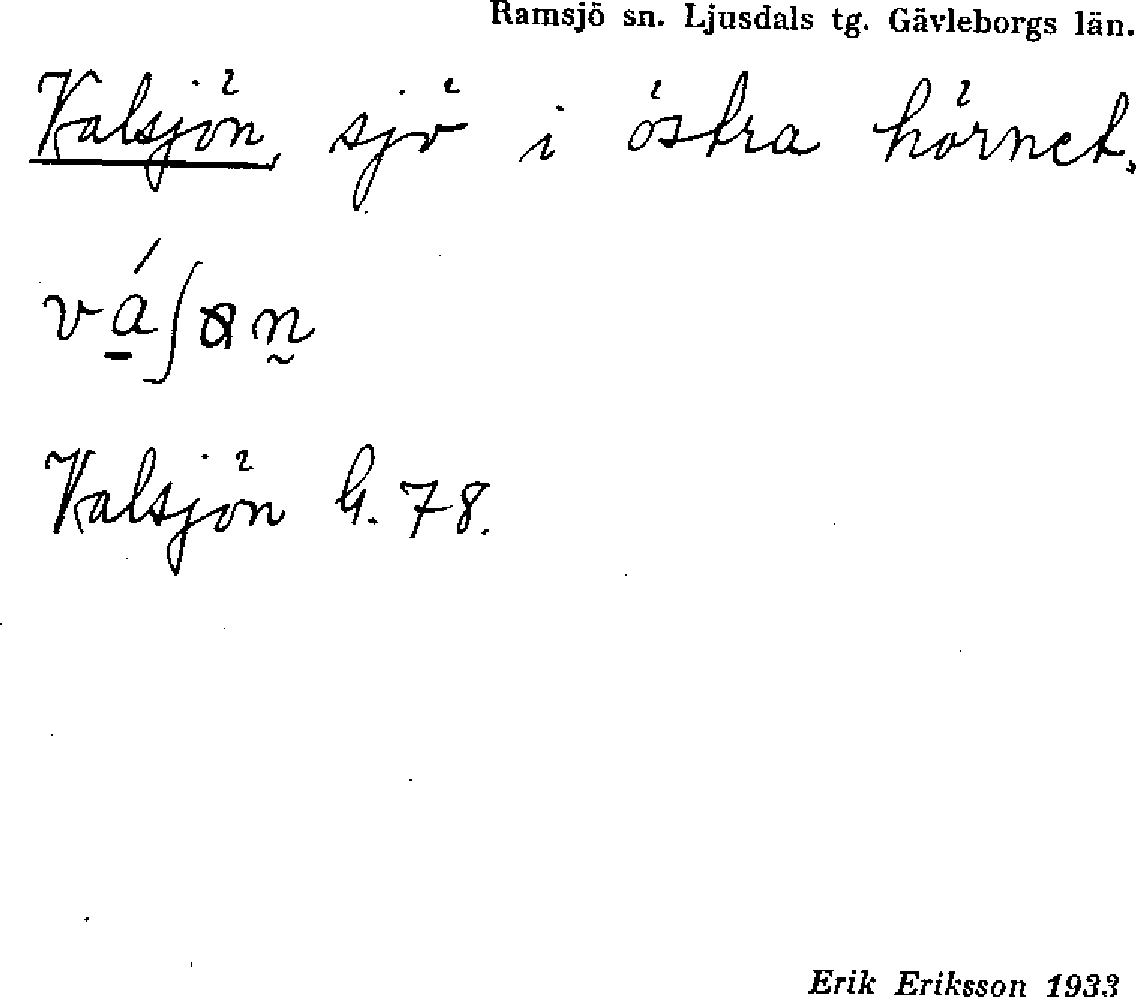 Ramsjö sn. Ljusdals tg. Gävleborgs län.
Valsjön, sjö i östra hörnet.
Valsjön G. 78.
Erik Eriksson 1933